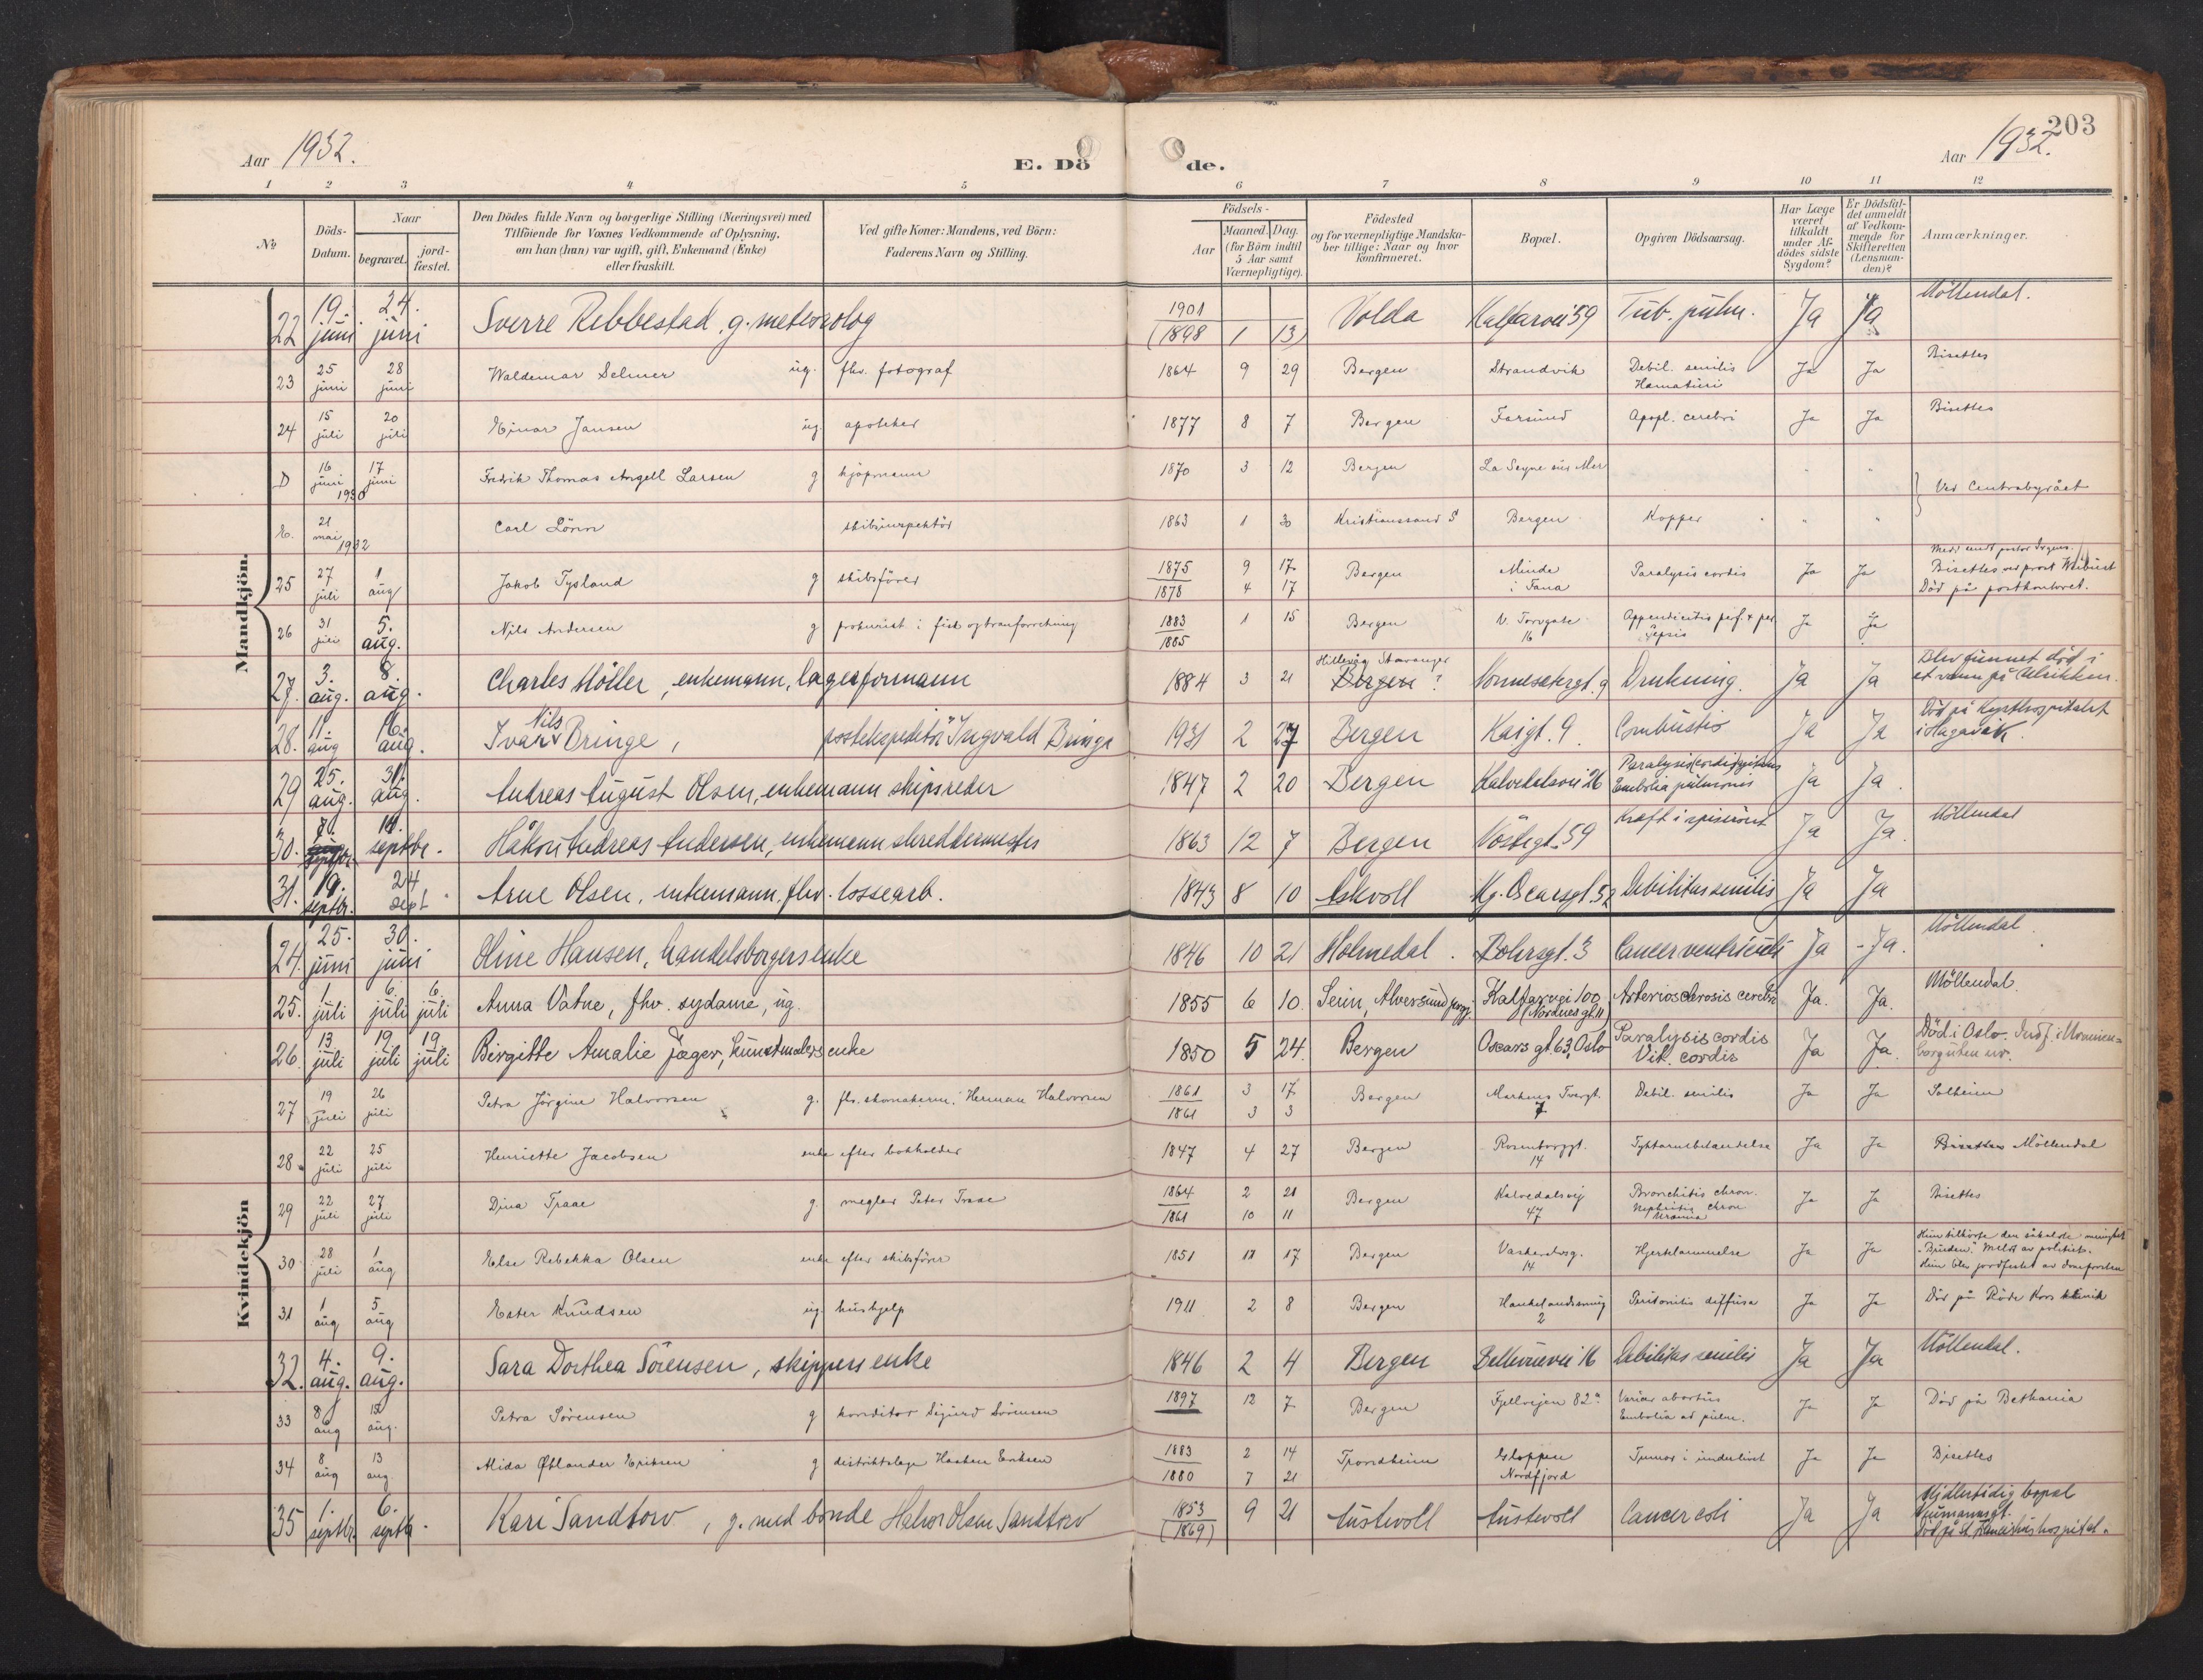 203
Aar 1932. E. Dö de. Aar 1932.
1 2 3 4 5 6 7 8 9 10 11 12
No
Döds-Datum.
Naar
begravet.
jord-fæstet.
Den Dödes fulde Navn og borgerlige Stilling (Næringsvei) med
Tilföiende for Voxnes Vedkommende af Oplysning,
om han (hun) var ugift, gift, Enkemand (Enke)
eller fraskilt.
Ved gifte Koner: Mandens, ved Börn:
Faderens Navn og Stilling.
Födsels-
Aar
Maaned. Dag.
(for Börn indtil
5 Aar samt
Værnepligtige).
Födested
og for værnepligtige Mandska-
ber tillige: Naar og hvor
konfirmeret.
Bopæl.
Opgiven Dödsaarsag.
Har Læge
været
tilkaldt
under Af-
dödes sidste
Sygdom?
Er Dödsfal-
det anmeldt
af Vedkom-
mende for
Skifteretten
(Lensman-
den)?
Anmærkninger.
Mandkjön.
22 19. juni 24. juni Sverre Rebbestad, g. meteorolog 1901 (1898 1 13) Volda Kalfarvei 59 Tub. pulm. Ja Ja Möllendal.
23 25 juni 28 juni Waldemar Selmer ug. fhv. fotograf 1864 9 29 Bergen Strandvik Debil. senilis Hæmaturi Ja Ja Bisettes
24 15 juli 20 juli Einar Jansen ug. apoteker 1877 8 7 Bergen Farsund Apopl. cerebri Ja Ja Bisettes
D 16 juni 1930 17 juni Fredrik Thomas Angell Larsen g kjöpmann 1870 3 12 Bergen La Seyne sur Mer " " Ved Centralbyrået
E. 21 mai 1932 Carl Lönn skibsinspektör 1863 1 30 Kristianssand S Bergen Kopper " "
25 27 juli 1 aug Jakob Tysland g skibsförer 1875 9 17 1878 4 17 Bergen Minde i Fana Paralysis cordis Ja Ja Bisettes ved prost
Död på postkontoret.
26 31 juli 5. aug. Nils Andersen g prokurist i fisk og tranforretning 1883 1 15 1885 Bergen V. Torvgate 16 Appendicitis perf. + per Sepsis Ja Ja
27. 3. aug. 8. aug. Charles Möller, enkemann, lagerformann 1884 3 21 Hillevåg Stavanger Bergen? Nonnesetergt. 9 Drukning. Ja Ja Blev funnet död i et vann på Ulrikken.
28. 11. aug 16. aug. Ivar Nils Bringe, postekspeditör Ingvald Bringe 1931 2 27 Bergen Kaigt. 9. Combustio Ja Ja Död på Kysthospitalet i Hagavik.
29 25. aug. 31. aug. Andreas August Olsen, enkemann skipsreder 1847 2 20 Bergen Kalvedalsvei 26 Paralysis cordis Embolia pulmonis Ja Ja
30. 8. septbr. 14. septbr. Håkon Andreas Andersen, enkemann skreddermester 1863 12 7 Bergen Vöstegt. 59 Kreft i spiserört Ja Ja. Möllendal
31. 19. septbr. 24 sept Arne Olsen, enkemann, fhv. lossearb. 1843 8 10 Askvoll Kg. Oscarsgt. 52 Debilitas senilis Ja Ja
Kvindekjön
24. 25. juni 30. juni Oline Hansen, handelsborgers enke 1846 10 21 Holmedal. Bohrsgt. 3 Cancer ventriculi Ja Ja. Möllendal.
25. 1. juli 6. juli 6. juli Anna Vatne, fhv. sydame, ug. 1855 6 10. Seim, Alversund Kalfarvei 100 (Nordnesgt. 11) Arteriosclerosis cerebri Ja. Ja. Möllendal.
26. 13 juli 19 juli 19 juli Birgitte Amalie Jæger, kunstmalers enke 1850 5 24. Bergen Oscars gt. 63, Oslo Paralysis cordis Vit. cordis Ja Ja. Död i Oslo.
27 19 juli 26 juli Petra Jörgine Halvorsen g. fhv. skomakerm. Herman Halvorsen 1861 3 17 1861 3 3 Bergen Markens Tvergt. 7 Debil. senilis Ja Ja Solheim
28 22 juli 25 juli Henriette Jacobsen enke efter bokholder 1847 4 27 Bergen Rosenborggt. 14 Tyktarmbetændelse Ja Ja Bisettes Möllendal
29 22 juli 27 juli Dina Traae g. megler Peter Traae 1864 2 21 1861 10 11 Bergen Kalvedalsvej 47 Bronchitis chron. Nephritis chron Uræmia Ja Ja Bisettes
30 28 juli 1 aug Else Rebekka Olsen enke efter skibsförer 1851 11 17 Bergen Vaskerelvsg. 14 Hjertelammelse Ja Ja Hun tilhörte den såkaldte menighet "Bruden".
31 1 aug 5 aug Ester Knudsen ug. hushjelp 1911 2 8 Bergen Haukelandssving 2 Peritonitis diffusa Ja Ja Död på Röde Kors klinik
32. 4. aug. 9. aug. Sara Dorthea Sörensen, skippers enke 1846 2 4 Bergen Bellevuevei 16 Debilitas senilis Ja Ja Möllendal.
33 8 aug 15 aug. Petra Sörensen g konditor Sigurd Sörensen 1897 12 7 Bergen Fjellvejen 82a abortus Embolia ad pulm. Ja Ja Död på Bethania
34 8 aug 13 aug. Alida Øblander Eriksen g distriktslæge Haakon Eriksen 1883 2 14 1880 7 21 Trondheim Gloppen Nordfjord Tumor i underlivet Ja Ja Bisettes
35 1. septbr. 6. septbr. Kari Sandtorv, g. med bonde Halvor Olsen Sandtorv 1853 (1869) 9 21 Austevoll Austevoll Cancer coli Ja Ja Midlertidig bopæl Neumannsgt.
Död på St. Franciskushospital.